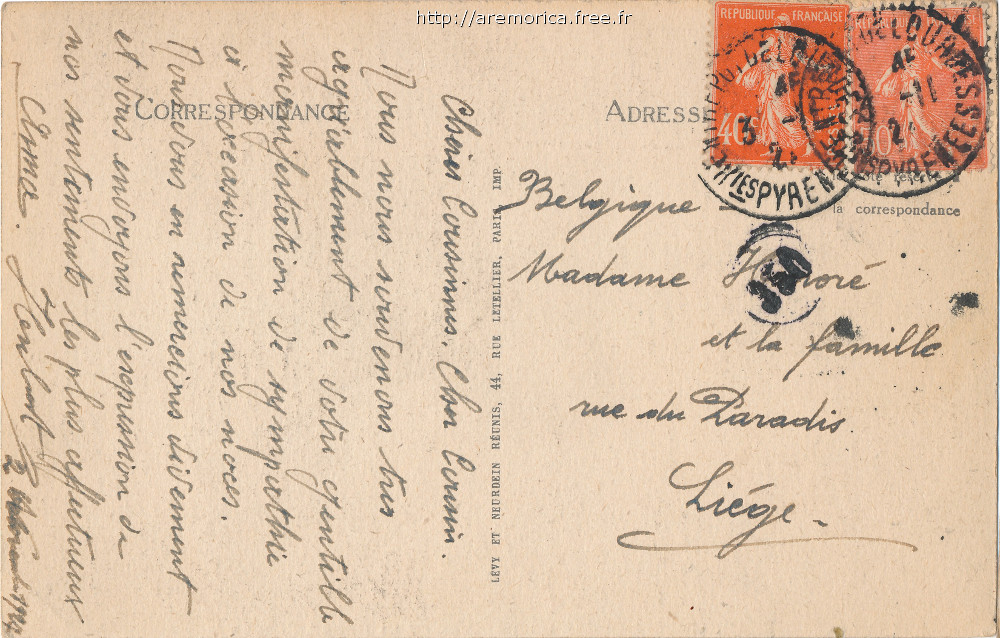 http://aremorica.free.fr
CORRESPONDANCE
Chères Cousines. Cher Cousin.
Nous nous souvenons très
agréablement de votre gentille
manifestation de sympathie
à l'occasion de nos noces.
Nous vous en remercions vivement
et vous envoyons l'expression de
nos sentiments les plus affectueux
2
LÉVY ET NEURDEIN RÉUNIS, 44, RUE LETELLIER, PARIS, IMP.
ADRESSE
RÉPUBLIQUE FRANÇAISE
40
RÉPUBLIQUE FRANÇAISE
50
LOURDES
HTES PYRENEES
la correspondance
350
Belgique
Madame Honoré
et la famille
rue du Paradis
Liége